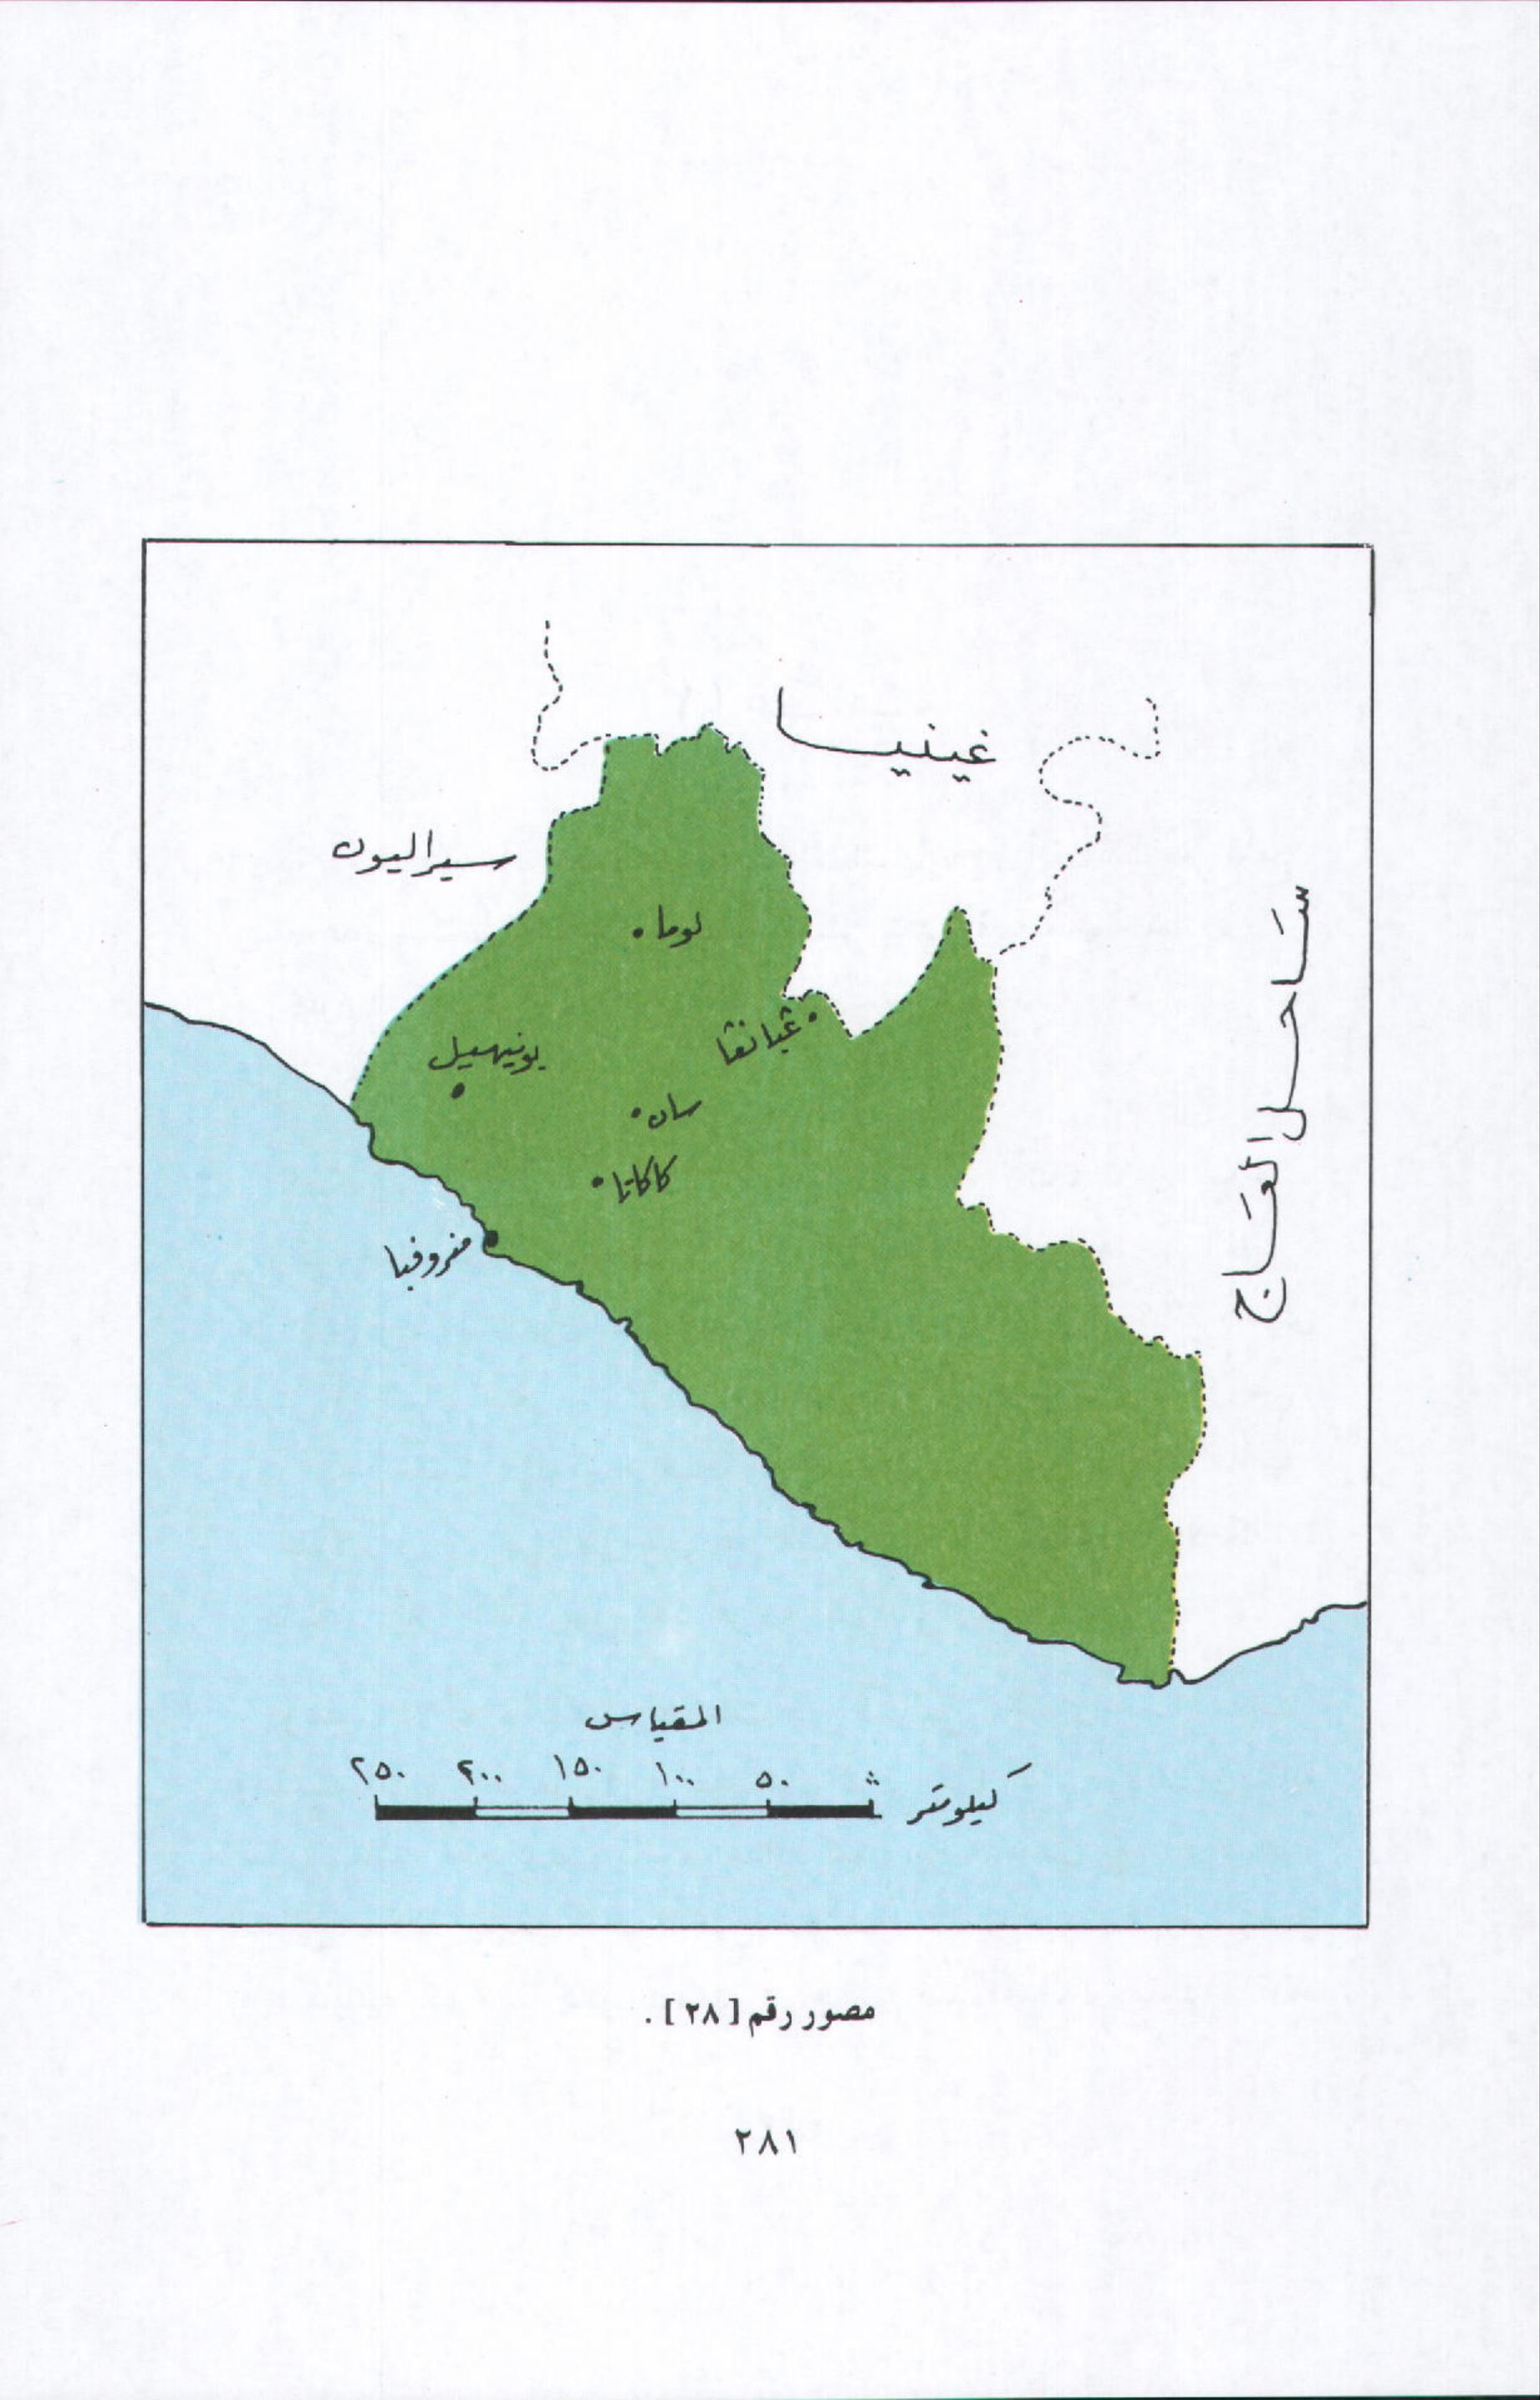 غينيا
سيراليون
ساحل العاج
لوما
غبانغا
بونيهيل
سان
كاكاتا
منروفيا
المقياس
٢٥٠ ٢٠٠ ١٥٠ ١٠٠ ٥٠
كيلومتر
مصور رقم [٢٨].
٢٨١